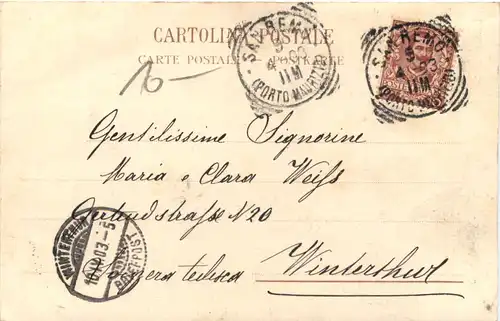 CARTOLINA POSTALE
CARTE POSTALE POSTKARTE
SAN REMO
(PORTO MAURIZIO)
11M
SAN REMO
(PORTO MAURIZIO)
11M
16 –
Gentilissime Signorine
Maria e Clara Weiſs
Gertrudstraſse No 20
Winterthur
tedesca
WINTERTHUR
BRIEFPOST